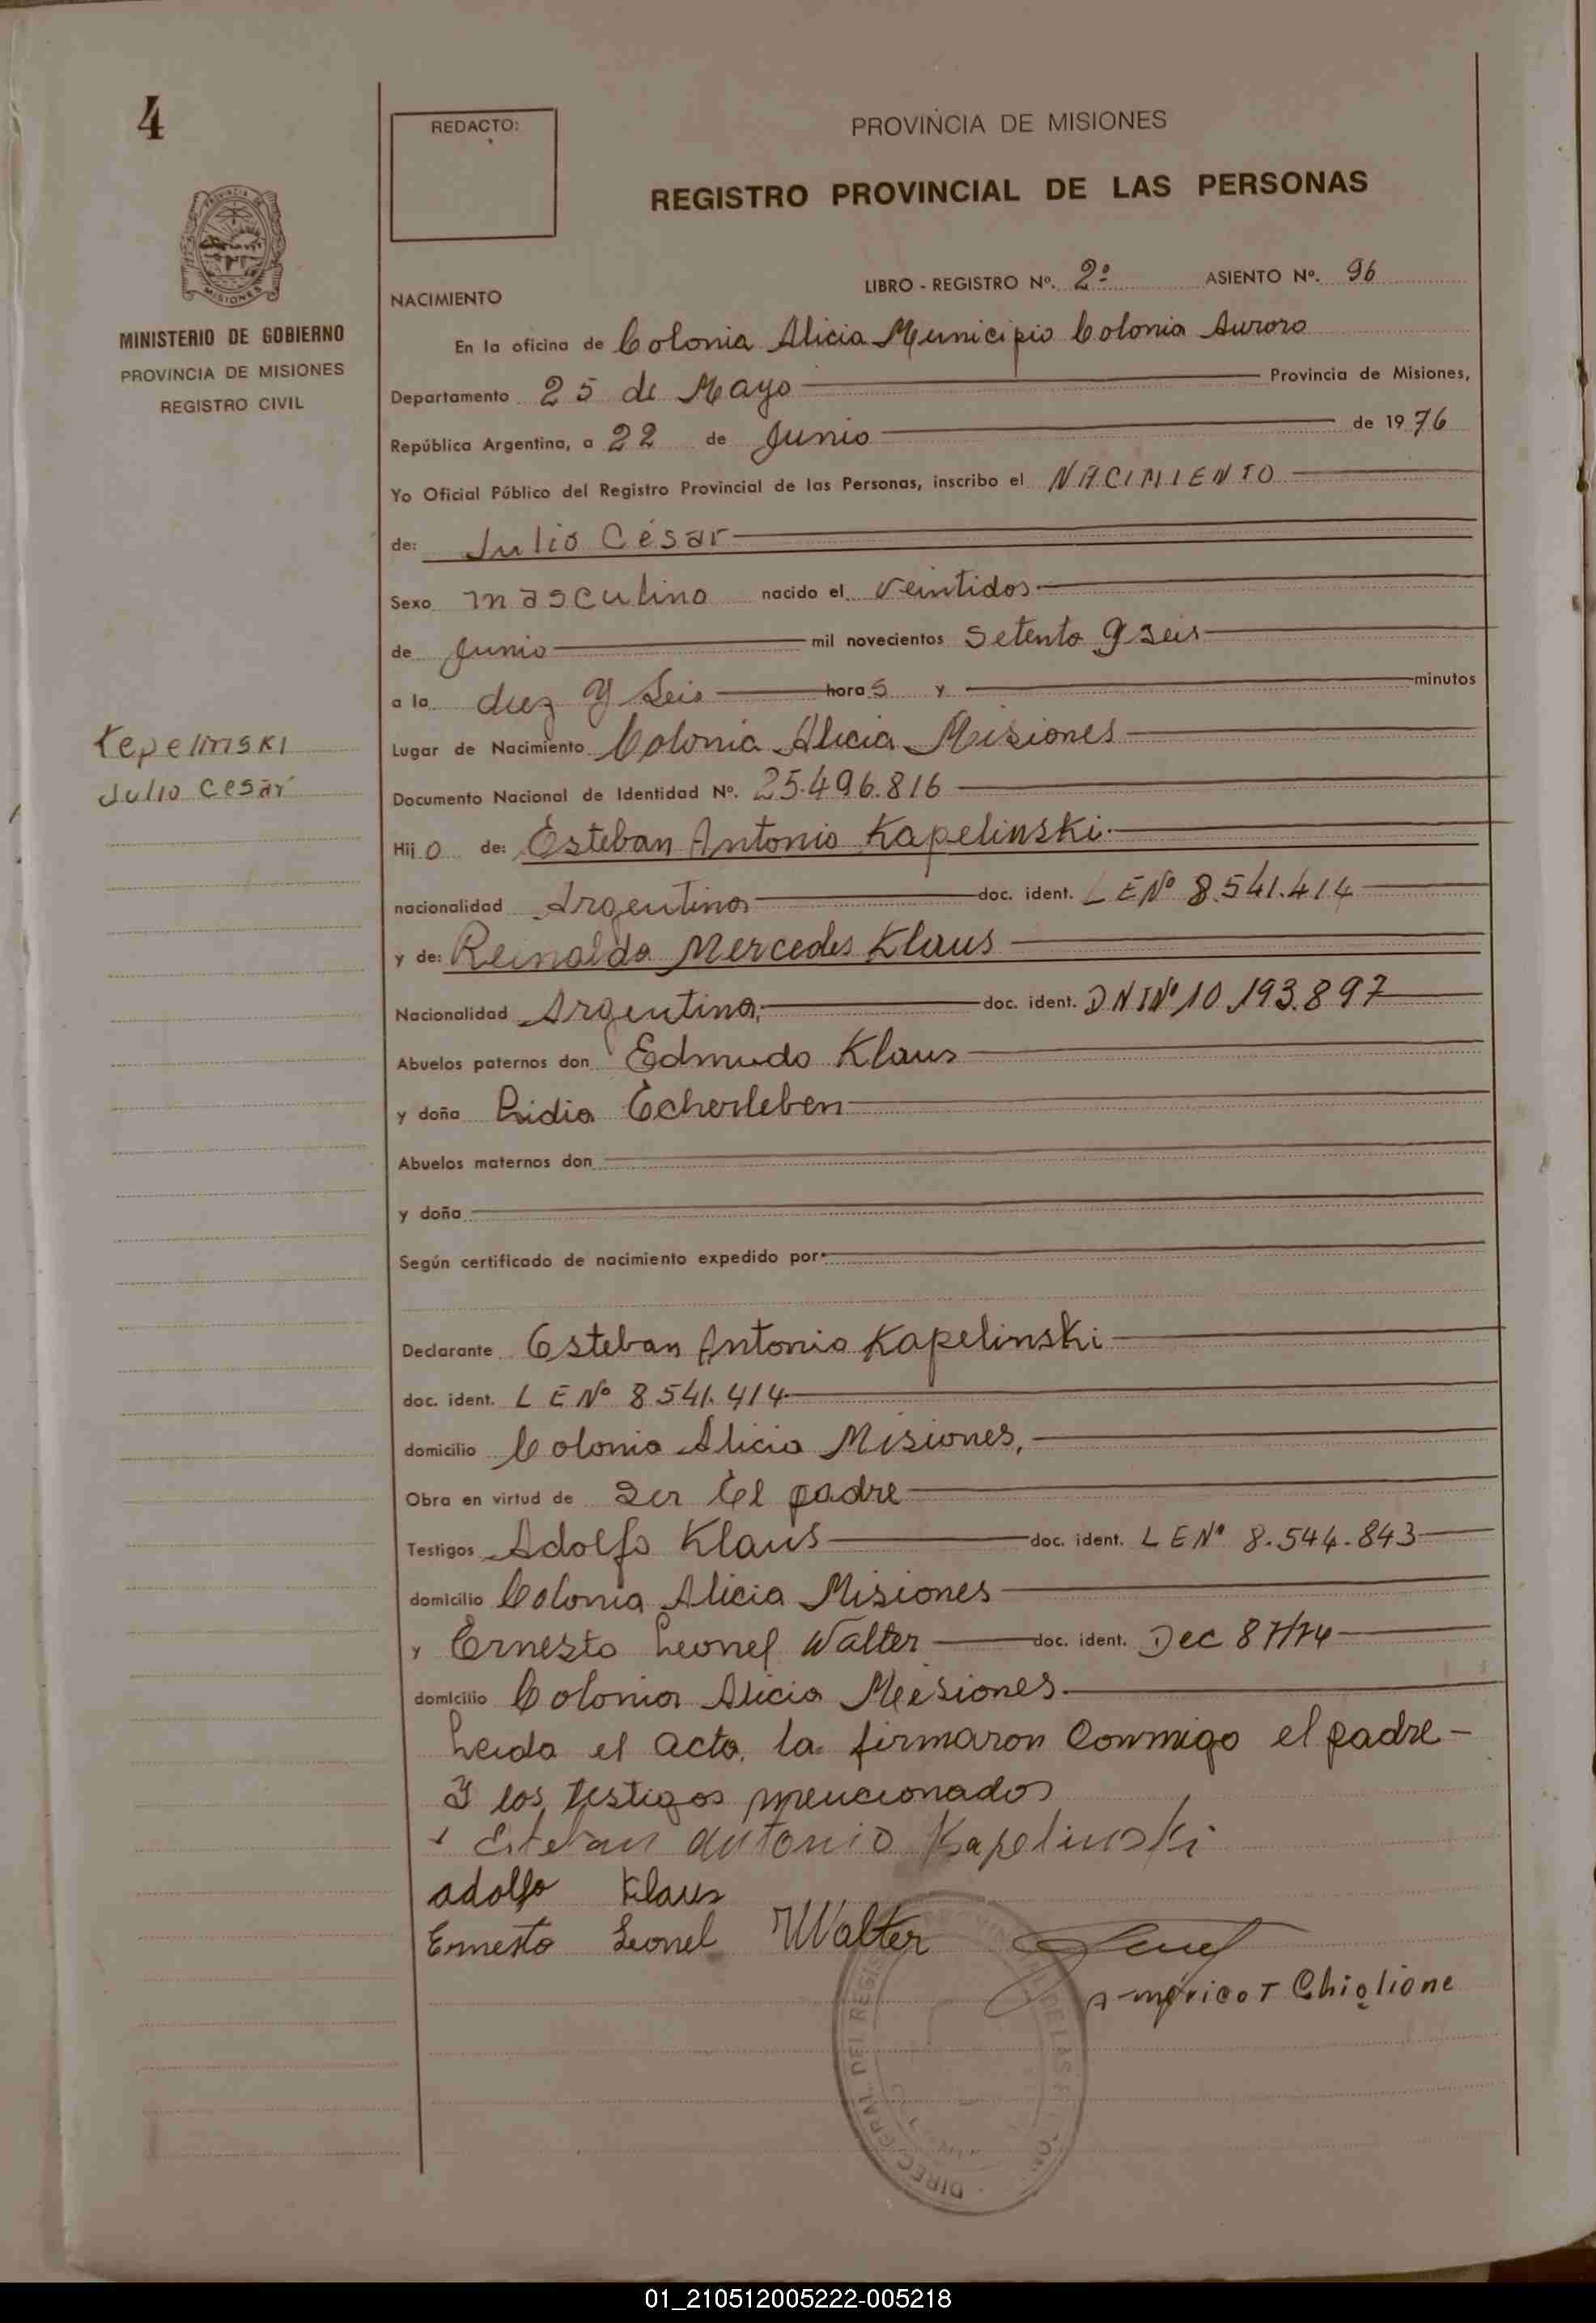 4
REDACTO:
PROVINCIA DE MISIONES
REGISTRO PROVINCIAL DE LAS PERSONAS
MISIONES
MINISTERIO DE GOBIERNO
PROVINCIA DE MISIONES
REGISTRO CIVIL
LIBRO - REGISTRO Nº. 2º ASIENTO Nº. 96
NACIMIENTO
En la oficina de Colonia Alicia Municipio Colonia Aurora
Departamento 25 de Mayo Provincia de Misiones,
República Argentina, a 22 de Junio de 1976
Yo Oficial Público del Registro Provincial de las Personas, inscribo el NACIMIENTO
de: Julio César
Sexo masculino nacido el veintidos
de Junio mil novecientos setenta y seis
a la diez y seis horas y minutos
Kepelinski
Julio Cesar
Lugar de Nacimiento Colonia Alicia Misiones
Documento Nacional de Identidad Nº. 25.496.816
Hijo de: Esteban Antonio Kapelinski
nacionalidad Argentina doc. ident. LE Nº 8.541.414
y de: Reinalda Mercedes Klaus
Nacionalidad Argentina doc. ident. DNI Nº 10.193.897
Abuelos paternos don Edmudo Klaus
y doña Lidia Echerleben
Abuelos maternos don
y doña
Según certificado de nacimiento expedido por
Declarante Esteban Antonio Kapelinski
doc. ident. LE Nº 8.541.414
domicilio Colonia Alicia Misiones,
Obra en virtud de ser el padre
Testigos Adolfo Klaus doc. ident. LE Nº 8.544.843
domicilio Colonia Alicia Misiones
y Ernesto Leonel Walter doc. ident. Dec
domicilio Colonia Alicia Misiones
Leida el acta, la firmaron conmigo el padre
y los testigos mencionados
Esteban Antonio Kapelinski
adolfo Klaus
Ernesto Leonel Walter
Américo T Ghiglione
01_210512005222-005218